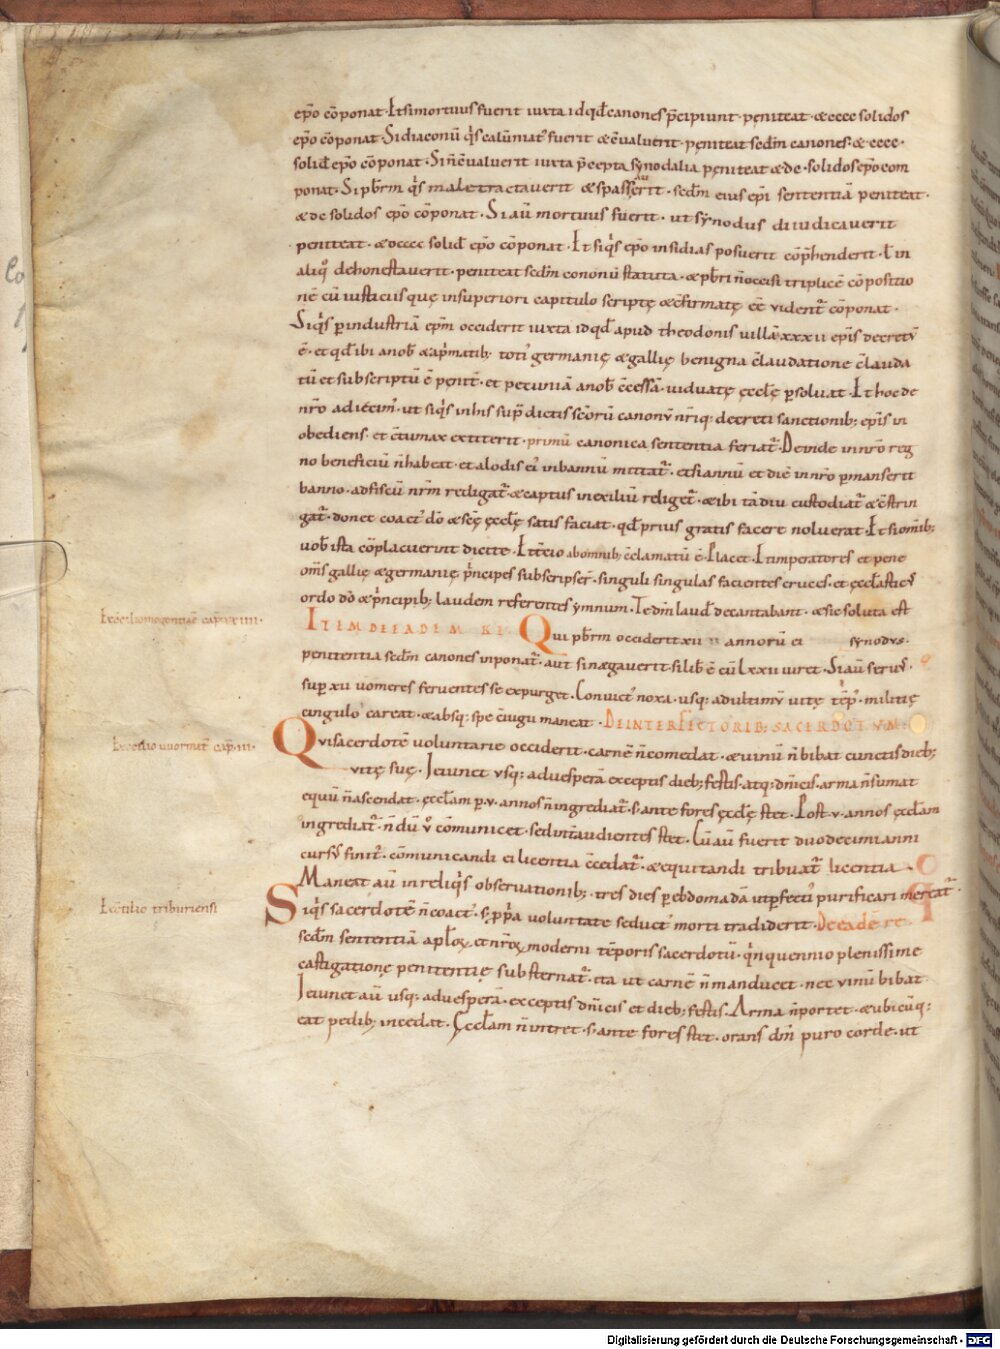 ep̄o cōponat· Et si mortuus fuerit iuxta id qđ canones p̄cipiunt· pęniteat· & cccc solidos
ep̄o cōponat· Si diaconū q̇s calūniat᾿ fuerit & c̄ualuerit· pęniteat sedm̄ canones· & cccc·
solid̄ ep̄o cōponat· Si ñ c̄ualuerit iuxta p̄cepta synodalia pęniteat & dc· solidos ep̄o com
ponat· Si pb̄rm q̇s male tractauerit & spassauerit· sedm̄ eius ep̄i sententiā peniteat·
& dc solidos ep̄o cōponat· Si aū mortuus fuerit· ut synodus diiudicauerit
peniteat· & dcccc solid̄ ep̄o cōponat· Et siq̇s ep̄o insidias posuerit cōp̄henderit· ł in
aliq̊ dehonestauerit· peniteat sedm̄ cononū statuta· & pb̄ri ñ occisi triplicē cōpositio
nē cū iusticiis quę in superiori capitulo scriptę & c̄firmatę eḗ uident᷑ cōponat·
Siq̇s p industriā epm̄ occiderit iuxta id qđ apud theodonis uillā xxxii ep̄is decretū
ē· et qđ ibi a nob̄ & a p̄matib; toti᾿ germanię & gallię benigna c̄laudatione c̄lauda
tū et subscriptū ē penit̄· et pecuniā a nob̄ c̄cessā· uiduatę ęcclę psoluat· Et hoc de
nr̄o adiecim᾿· ut siq̇s in his sup̄dictis sc̄orū canonū nr̄iq; decreti sanctionib; ep̄is in
obediens· et c̄tumax extiterit· primū canonica sententia feriat᷑· Deinde in nr̄o reg
no beneficiū ñ habeat· et alodis ei᾿ in bannū mittat᷑· et si annū et diē in nr̄o pmanserit
banno· ad fiscū nr̄m redigat᷑· & captus in exiliū religet᷑· & ibi tādiu custodiat᷑ & c̄strin
gat᷑· donec coact᾿ dō & sc̄ę ęcclę satis faciat· qđ prius gratis facere noluerat· Et si om̄ib;
uob̄ ista cōplacuerint dicite· Et tcio ab omnib; c̄clamatū ē· Placet· Et imperatores et pene
om̄s gallię & germanię p̄ncipes subscripser̄· singuli singulas facientes cruces· et ęccl̄asticꝰ
ordo dō & p̄ncipib; laudem referentes ymnum· Te dm̄ laud̄ decantabant· & sic soluta est
Ex cc̄ moguntiacē cap· xxiiii·
ITEM DE EADEM RE Qui pb̄rm occiderit xii annorū ei synodus·
penitentia sedm̄ canones inponat᷑· aut si negauerit· si lib̄ ē cū lxxii iuret· Si aū seruꝰ·
sup xii uomeres feruentes se expurget· Conuict᾿ noxa· usq; ad ultimū uitę tēp᾿· militię
cingulo careat· & absq; spe c̄iugii maneat· DE INTERFECTORIB; SACERDOTVM·
Ex ccilio wormat̄ cap· iii·
Qui sacerdotē uoluntarie occiderit· carnē ñ comedat· & uinū ñ bibat cunctis dieb;
uitę suę· Ieiunet usq; ad uesperā exceptis dieb; festis· atq; dn̄icis· arma ñ sumat
equū ñ ascendat· ęccl̄am p· v· annos ñ ingrediat᷑· s; ante fores ęcclę stet· Post v· annos ęccl̄am
ingrediat᷑· ñ dū u̇ cōmunicet· sed int̄ audientes stet· Cū aū fuerit duodecimi anni
cursꝰ finit᾿· cōmunicandi ei licentia c̄cedat᷑· & equitandi tribuat᷑ licentia·
Maneat aū in reliq̇s obseruationib; tres dies p ebdomadā ut pfecti᾿ purificari mereat᷑·
Ex c̄cilio triburiensi
Siq̇s sacerdotē ñ coact᾿· s; p̄pa uoluntate seduct᾿ morti tradiderit· De eadē re
sedm̄ sententiā apl̄ox et nr̄ox moderni tēporis sacerdotū· q̇nquennio plenissime
castigationę penitentię substernat᷑· ita ut carnē ñ manducet· nec uinū bibat·
Ieiunet aū usq; ad uesperā· exceptis dn̄icis et dieb; festis· Arma ñ portet· & ubicūq;
eat pedib; incedat· Ęccl̄am ñ intret· s; ante fores stet· orans dm̄ puro corde· ut
Digitalisierung gefördert durch die Deutsche Forschungsgemeinschaft · DFG